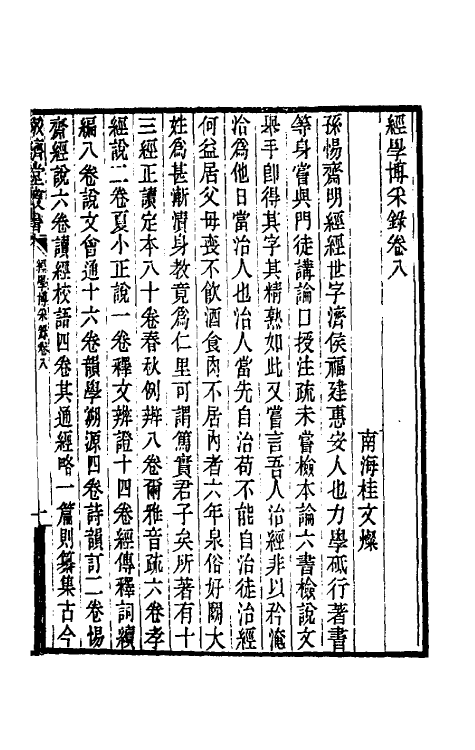 經學博采錄卷八
南海桂文燦
孫惕齋明經經世字濟侯福建惠安人也力學砥行著書
等身嘗與門徒講論口授注疏未嘗檢本論六書檢說文
舉手即得其字其精熟如此又嘗言吾人治經非以矜淹
洽為他日當治人也治人當先自治苟不能自治徒治經
何益居父母喪不飲酒食肉不居內者六年泉俗好鬬大
姓為甚漸漬身教竟為仁里可謂篤實君子矣所著有十
三經正讀定本八十卷春秋例辨八卷爾雅音疏六卷孝
經說二卷夏小正說一卷釋文辨證十四卷經傳釋詞續
編八卷說文會通十六卷韻學溯源四卷詩韻訂二卷惕
齋經說六卷讀經校語四卷其通經略一篇則纂集古今
敬躋堂叢書
經學博采錄卷八
一